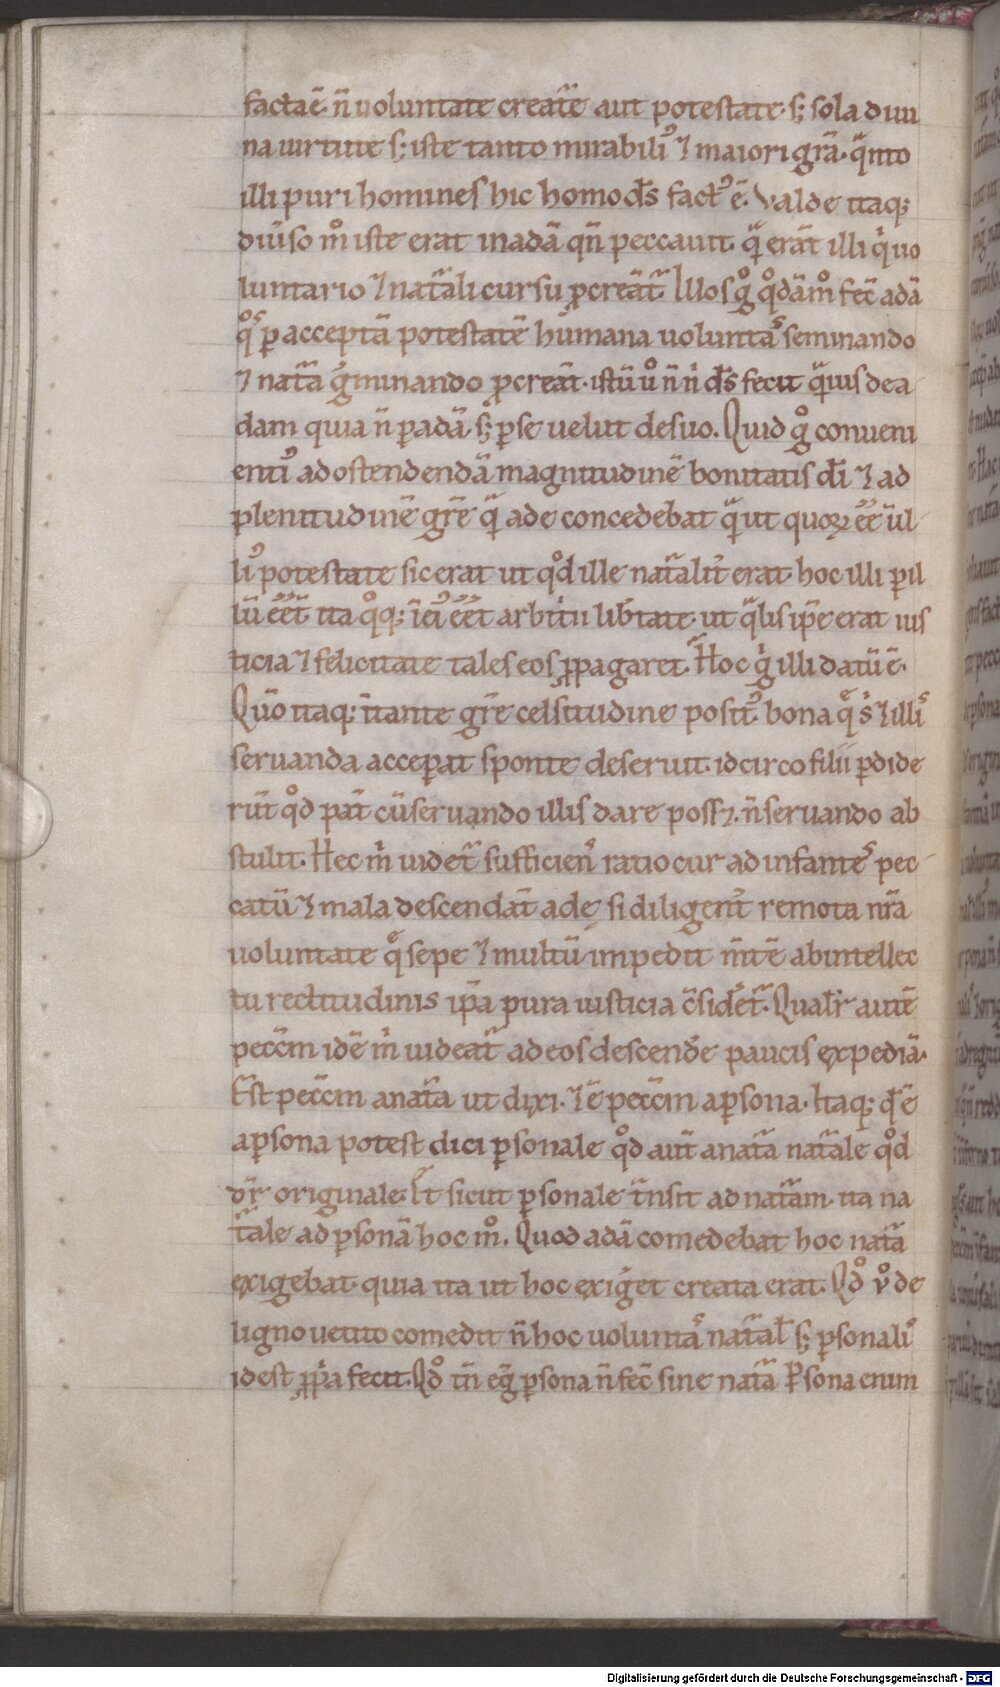 factaē n̄ uoluntate creat̄e aut potestate· s; sola diui
na uirtute s; iste tanto mirabiliꝰ ⁊ maiori gr̄a· q̄nto
illi puri homines hic homo d̄s factꝰ ē. Valde itaq;
diu̾so mͦ iste erat in adā qn̄ peccauit· qͣ erāt illi qͥ uo
luntario ⁊ nat̄ali cursu ꝓcreāt̄. Illos gͦ qͦdāmͦ fec̄ adā
qͦs ꝑ acceptā potestatē humana uoluntaˢ seminando
⁊ nat̄a g̾minando ꝓcreāt· istū uͦ n̄ nͥ d̄s fecit qͣuis de a
dam quia n̄ ꝑ adā· s; ꝑ se uelut de suo. Quid gͦ conueni
entiꝰ ad ostendendā magnitudinē bonitatis dī ⁊ ad
plenitudinē gr̄e qͣ ade concedebat qͣ ut quoꝝ ee͞ ī ul
liꝰ potestate sic erat ut qͦd ille nat̄alit̾ erat· hoc illi ꝑ il
lū ee͞t· ita qͦq; ī eiꝰ ee͞t arbitrii lib̾tate· ut qͣlis ip̄e erat ius
ticia ⁊ felicitate tales eos ꝓpagaret. Hoc gͥ illi datū ē.
Qūo itaq; ī tante gr̄e celsitudine positꝰ· bona qͤ sͥ ⁊ illiˢ
seruanda accep̾at sponte deseruit· idcirco filii ꝑdide
rūt qͦd pat̄ cū seruando illis dare poss⁊· n̄ seruando ab
stulit. Hec mͥ uidet̄ sufficienˢ ratio cur ad infanteˢ pec
catū ⁊ mala descendāt ade̜ si diligent̾ remota nr̄a
uoluntate qͤ sepe ⁊ multū impedit m̄tē ab intellec
tu rectitudinis ip̄a pura iusticia c̄sid̾et̄. Qualr̄ autē
pecc̄m idē mͥ uideat̄ ad eos descend̾e paucis expediā·
Est pecc̄m a nat̄a ut dixi· ⁊ ē pecc̄m a ꝑsona· Itaq; qͤ ē
a ꝑsona potest dici ꝑsonale qͦd aut̄ a nat̄a nat̄ale qͦd
dr̄ originale. Et sicut ꝑsonale t̄nsit ad nat̄am· ita na
t̄ale ad ꝑsonā hoc mͦ. Quod adā comedebat hoc nat̄a
exigebat· quia ita ut hoc exig̾et creata erat. Qd̊ v̊ de
ligno uetito comedit n̄ hoc uoluntaˢ nat̄al̄ s; ꝑsonaliˢ
id est ꝓpͥa fecit. Qd̊ tn̄ eg̾ ꝑsona n̄ fec̄ sine nat̄a Ꝑsona enim
Digitalisierung gefördert durch die Deutsche Forschungsgemeinschaft - DFG